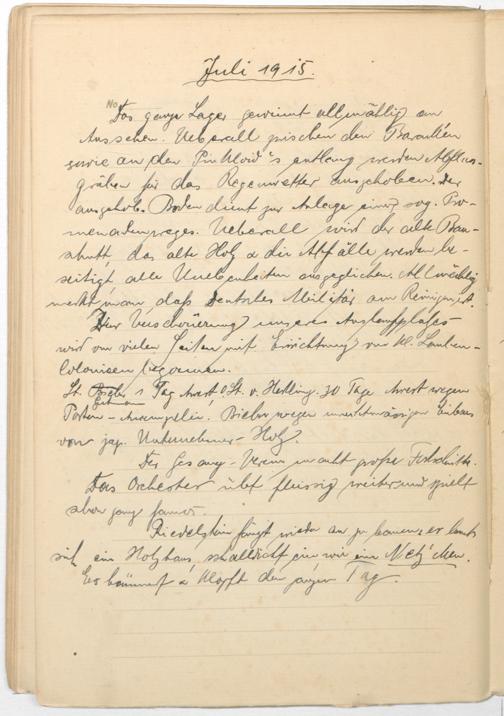 Juli 1915.
No
Das ganze Lager gewinnt allmählig an
Aussehen. Ueberall zwischen den Baracken
sowie an den entlang werden Abfluss-
gräben für das Regenwetter ausgehoben. Der
ausgehob. Boden dient zur Anlage eines sog. Pro-
menadenweges. Ueberall wird der alte Bau-
schutt, das alte Holz & die Abfälle werden be-
seitigt, alle Unebenheiten ausgeglichen. Allmählig
merkt man, daß deutsches Militär am Reinigen ist.
Der Verschönerung unseres Auslaufplatzes
wird von vielen Seiten mit Errichtung von kl. Lauben-
colonieen begonnen.
St. 1 Tag Arrest O.St. v. Hertling. 30 Tage Arrest wegen
Posten- Bieber wegen
von jap. Unternehmer-Holz.
Der Gesang-Verein macht große Fortschritte.
Das Orchester übt fleissig weiter und spielt
aber ganz famos.
Riedelstein fängt wieder an zu bauen, er baut
sich ein Holzhaus, schalldicht ein wie
Es hämmert & klopft den ganzen Tag.